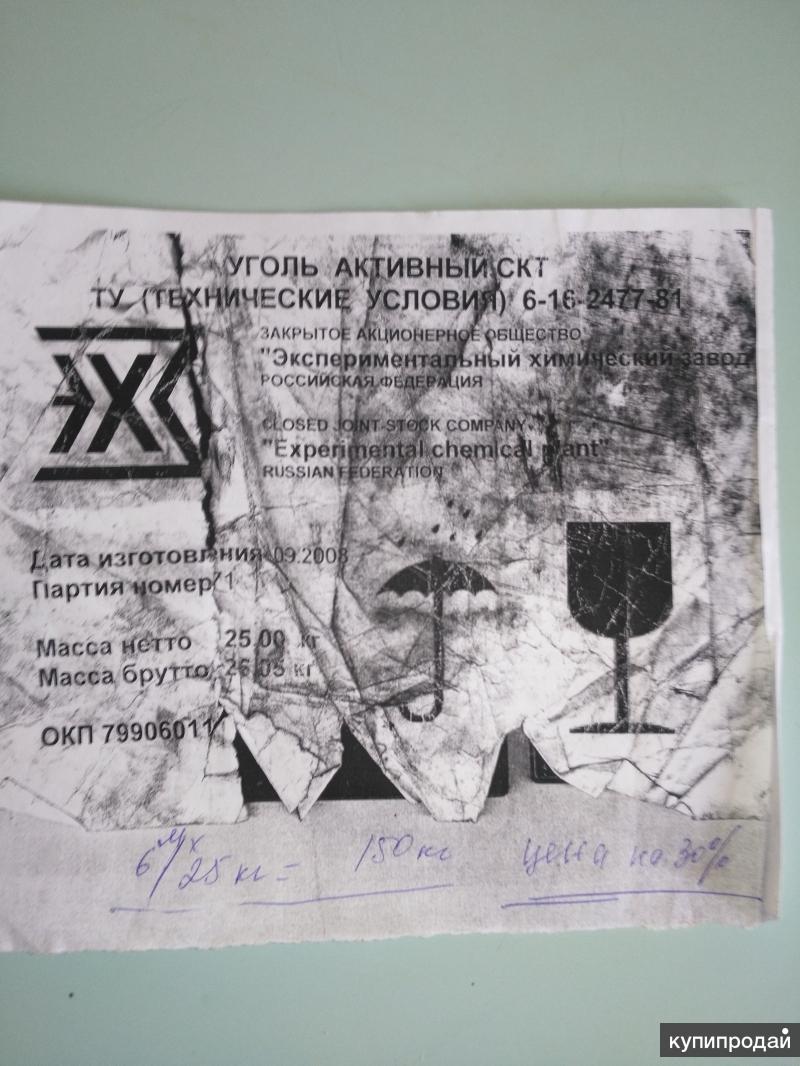 УГОЛЬ АКТИВНЫЙ СКТ
ТУ (ТЕХНИЧЕСКИЕ УСЛОВИЯ) 6-16-2477-81
ЭХЗ
ЗАКРЫТОЕ АКЦИОНЕРНОЕ ОБЩЕСТВО
"Экспериментальный химический завод
РОССИЙСКАЯ ФЕДЕРАЦИЯ
CLOSED JOINT-STOCK COMPANY
"Experimental chemical plant"
RUSSIAN FEDERATION
Дата изготовления 09.2008
Партия номер 1
Масса нетто 25.00 кг
Масса брутто 26,05 кг
ОКП 79906011
6 25 кг = 150 кг цена на 30%
купипродай